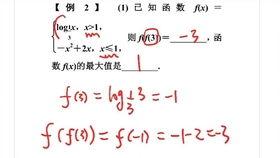 【例 2】 (1) 已知函数 f(x) =
{log_{1/3}x, x>1,
则 f(f(3)) = -3 , 函
-x²+2x, x≤1,
数 f(x)的最大值是 1 .
f(3) = log_{1/3}3 = -1
f(f(3)) = f(-1) = -1-2=-3